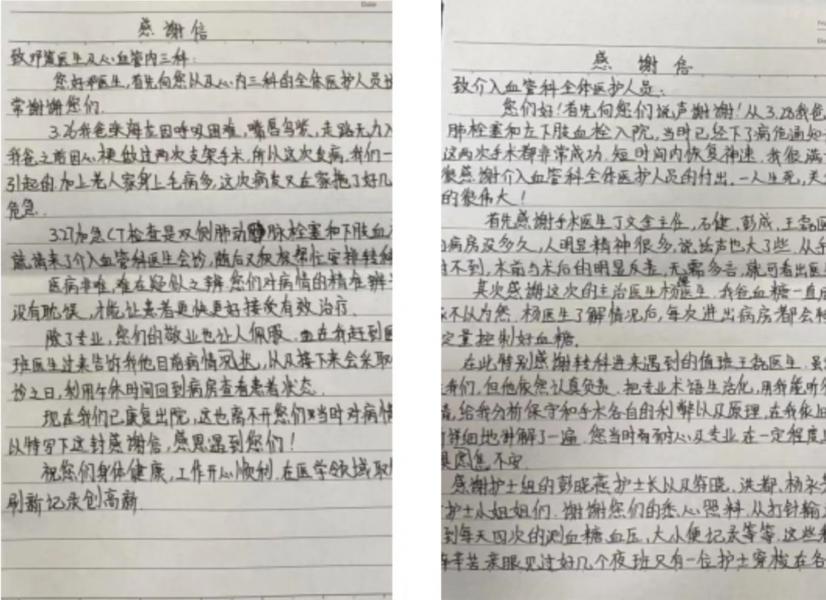 感谢信
致邓医生及心血管内三科:
您好邓医生,首先向您以及心内三科的全体医护人员说
常谢谢您们.
3.26我爸来海在因呼吸困难,嘴唇乌紫,走路无力入
我爸之前因心梗做过两次支架手术,所以这次发病,我们一
引起的.加上老人家身上毛病多,这次病发又在家拖了好几
危急.
3.27加急CT检查是双侧肺动脉栓塞和下肢血
就请来了介入血管科医生会诊,随后又积极帮忙安排转科
医病非难,难在疑似之辨.您们对病情的精准辨
没有耽误,才能让患者更快更好接受有效治疗.
除了专业,您们的敬业也让人佩服.在我赶到医
班医生过来告诉我他目前病情况状,以及接下来会采取
诊之日,利用午休时间回到病房查看患者状态.
现在我们已康复出院,这也离不开您们当时对病情
以特写下这封感谢信,感恩遇到您们!
祝您们身体健康,工作开心顺利.在医学领域取
刷新记录创高新.
感谢信
致介入血管科全体医护人员:
您们好!首先向您们说声谢谢!从3.28我爸
肺栓塞和左下肢血栓入院,当时已经下了病危通知
这两次手术都非常成功.短时间内恢复神速.我很满
很感谢介入血管科全体医护人员的付出.一人生死,天
的很伟大!
首先感谢手术医生丁文金主任,石健,彭成,王磊医
病房没多久,人明显精神很多,说话声也大了些.从手
不到,术前与术后的明显反差,无需多言,就可看出医
其次感谢这次的主治医生杨医生.我爸血糖一直
不以为然.杨医生了解情况后,每次进出病房都会
定量控制好血糖.
在此特别感谢转科进来遇到的值班王磊医生.虽
我们,但他依然认真负责.把专业术语生活化,用我能听
情,给我分析保守和手术各自的利弊以及原理,在我
详细地讲解了一遍.您当时有耐心及专业在一定程度
焦虑不安.
感谢护士组的彭晓燕护士长以及蒋晓.洪都.杨
护士小姐姐们.谢谢您们的悉心照料.从打针输
到每天四次的测血糖,血压,大小便记录等等.这些
辛苦.亲眼见过好几个夜班只有一位护士穿梭在各